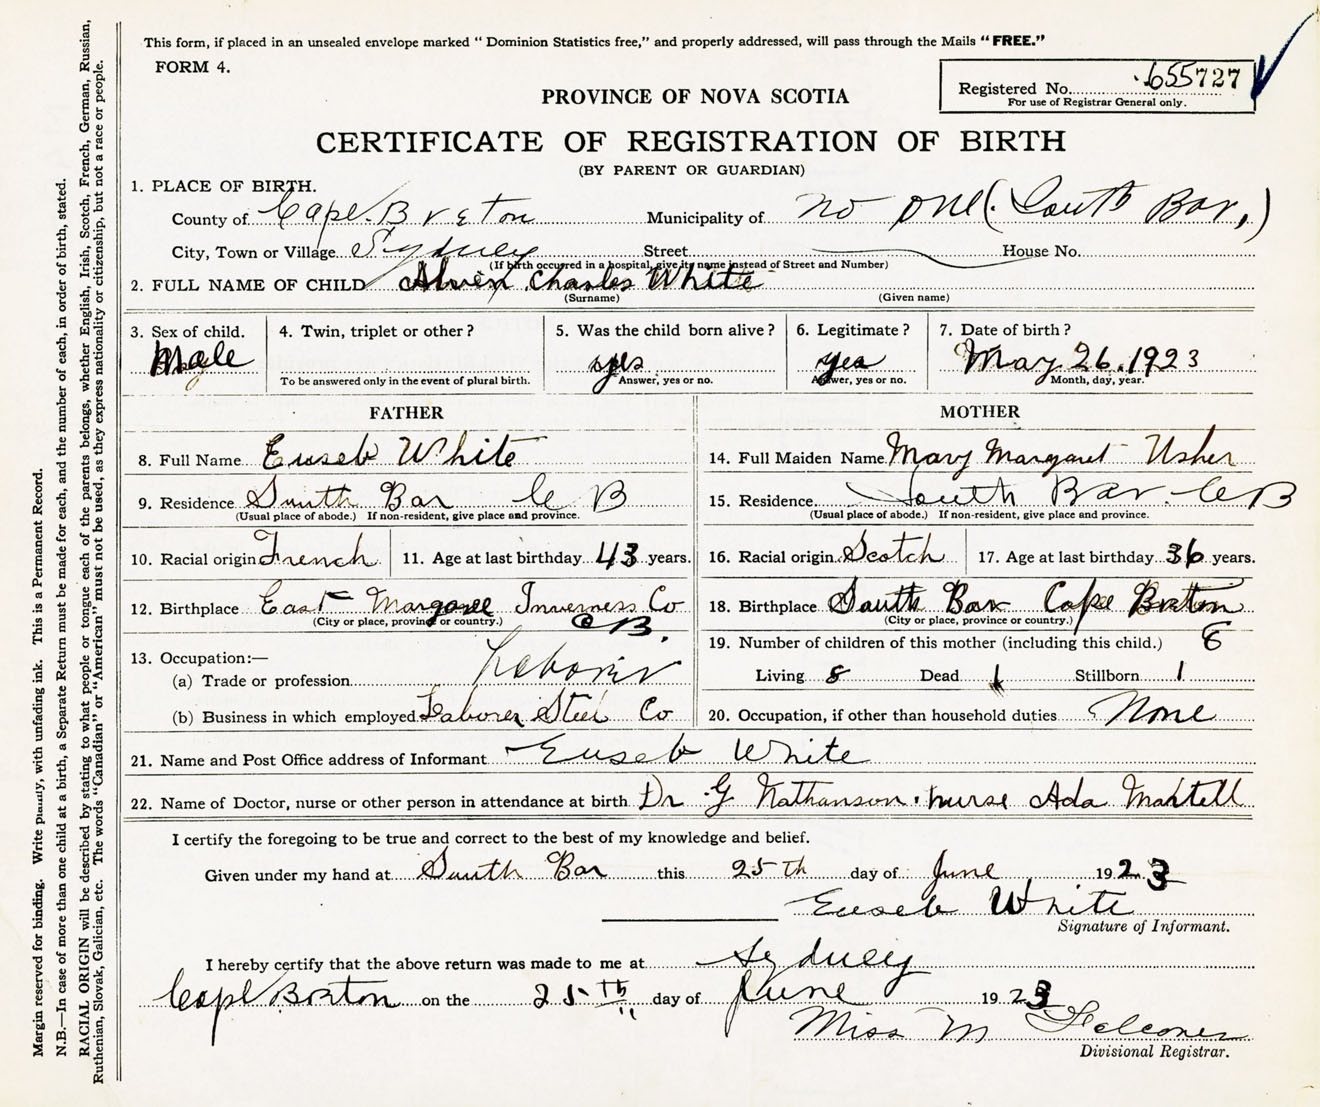 This form, if placed in an unsealed envelope marked “ Dominion Statistics free,” and properly addressed, will pass through the Mails “FREE.”
FORM 4.
Registered No. 655727
For use of Registrar General only.
PROVINCE OF NOVA SCOTIA
CERTIFICATE OF REGISTRATION OF BIRTH
(BY PARENT OR GUARDIAN)
1. PLACE OF BIRTH.
County of Cape Breton Municipality of no one (South Bar,)
City, Town or Village Sydney Street House No.
(If birth occurred in a hospital, give its name instead of Street and Number)
2. FULL NAME OF CHILD Charles White
(Surname) (Given name)
3. Sex of child. 4. Twin, triplet or other? 5. Was the child born alive? 6. Legitimate? 7. Date of birth?
Male yes yes May 26. 1923
To be answered only in the event of plural birth. Answer, yes or no. Answer, yes or no. Month, day, year.
FATHER MOTHER
8. Full Name Euseb White 14. Full Maiden Name Mary Margaret Usher
9. Residence South Bar C B 15. Residence South Bar C B
(Usual place of abode.) If non-resident, give place and province. (Usual place of abode.) If non-resident, give place and province.
10. Racial origin French 11. Age at last birthday 43 years. 16. Racial origin Scotch 17. Age at last birthday 36 years.
12. Birthplace East Margaree Inverness Co 18. Birthplace South Bar Cape Breton
(City or place, province or country.) C B. (City or place, province or country.)
19. Number of children of this mother (including this child.)
13. Occupation:—
(a) Trade or profession Laborer Living 8 Dead 1 Stillborn 1
(b) Business in which employed Laborer Steel Co 20. Occupation, if other than household duties None
21. Name and Post Office address of Informant Euseb White
22. Name of Doctor, nurse or other person in attendance at birth Dr G Nathanson. nurse Ada Martell
I certify the foregoing to be true and correct to the best of my knowledge and belief.
Given under my hand at South Bar this 25 th day of June 1923
Euseb White
Signature of Informant.
I hereby certify that the above return was made to me at Sydney
Cape Breton on the 25th day of June 1923
Miss M Falconer
Divisional Registrar.
Margin reserved for binding. Write plainly, with unfading ink. This is a Permanent Record.
N.B.—In case of more than one child at a birth, a Separate Return must be made for each, and the number of each, in order of birth, stated.
RACIAL ORIGIN will be described by stating to what people or tongue each of the parents belongs, whether English, Irish, Scotch, French, German, Russian,
Ruthenian, Slovak, Galician, etc. The words “Canadian” or “American” must not be used, as they express nationality or citizenship, but not a race or people.